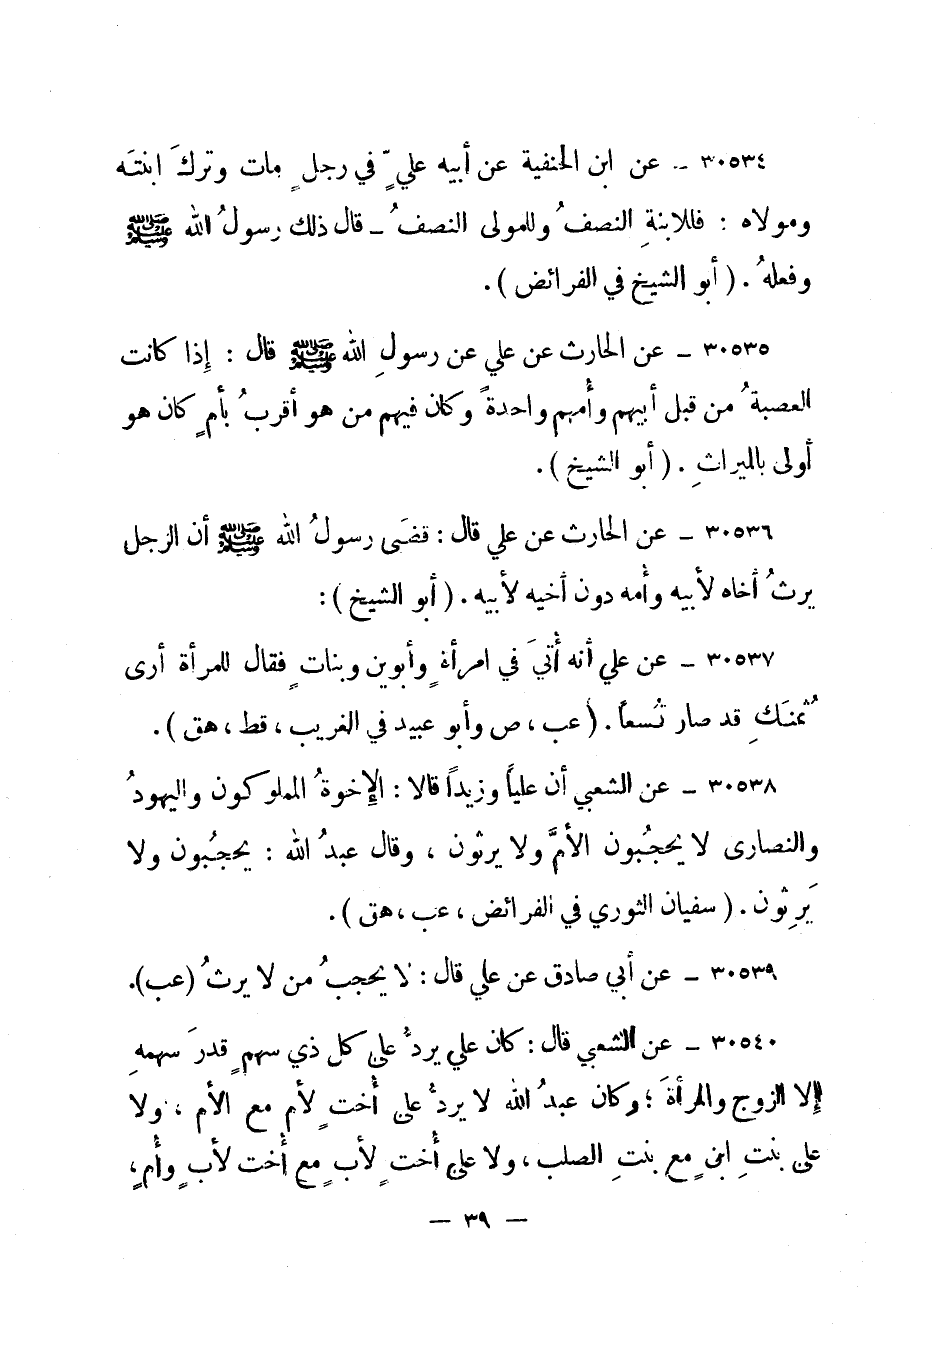 ٣٠٥٣٤ ــ عن ابن الحنفية عن أبيه عليٍّ في رجلٍ مات وتركَ ابنتَه
ومولاه : فللابنةِ النصفُ وللمولى النصفُ ــ قال ذلك رسولُ الله ﷺ
وفعلهُ . ( أبو الشيخ في الفرائض ) .
٣٠٥٣٥ ــ عن الحارث عن علي عن رسولِ الله ﷺ قال : إِذا كانت
العصبةُ من قبل أبيهم وأُمهم واحدةً وكان فيهم من هو أقربُ بأمٍ كان هو
أولى بالميراثِ . ( أبو الشيخ ) .
٣٠٥٣٦ ــ عن الحارث عن علي قال : قضَى رسولُ الله ﷺ أن الرجل
يرثُ أخاه لأبيه وأُمه دون أخيه لأبيه . ( أبو الشيخ ) :
٣٠٥٣٧ ــ عن علي أنه أُتيَ في امرأةٍ وأبوين وبناتٍ فقال للمرأة أرى
ثُمنَكِ قد صار تُسعاً . ( عب ، ص وأبو عبيد في الغريب ، قط ، هق ) .
٣٠٥٣٨ ــ عن الشعبي أن علياً وزيداً قالا : الإِخوةُ المملوكون واليهودُ
والنصارى لا يحجُبون الأمَّ ولا يرثون ، وقال عبدُ الله : يحجُبون ولا
يَرِثون . ( سفيان الثوري في الفرائض ، عب ، هق ) .
٣٠٥٣٩ ــ عن أبي صادق عن علي قال : لا يحجبُ من لا يرثُ (عب).
٣٠٥٤٠ ــ عن الشعبي قال : كان علي يردُّ على كل ذي سهمٍ قدرَ سهمهِ
إلا الزوج والمرأةَ ؛ وكان عبدُ الله لا يردُّ على أُختٍ لأم مع الأم ، ولا
على بنتِ ابنٍ مع بنتِ الصلب ، ولا على أُختٍ لأبٍ مع أُخت لأبٍ وأُمٍ ،
— ٣٩ —